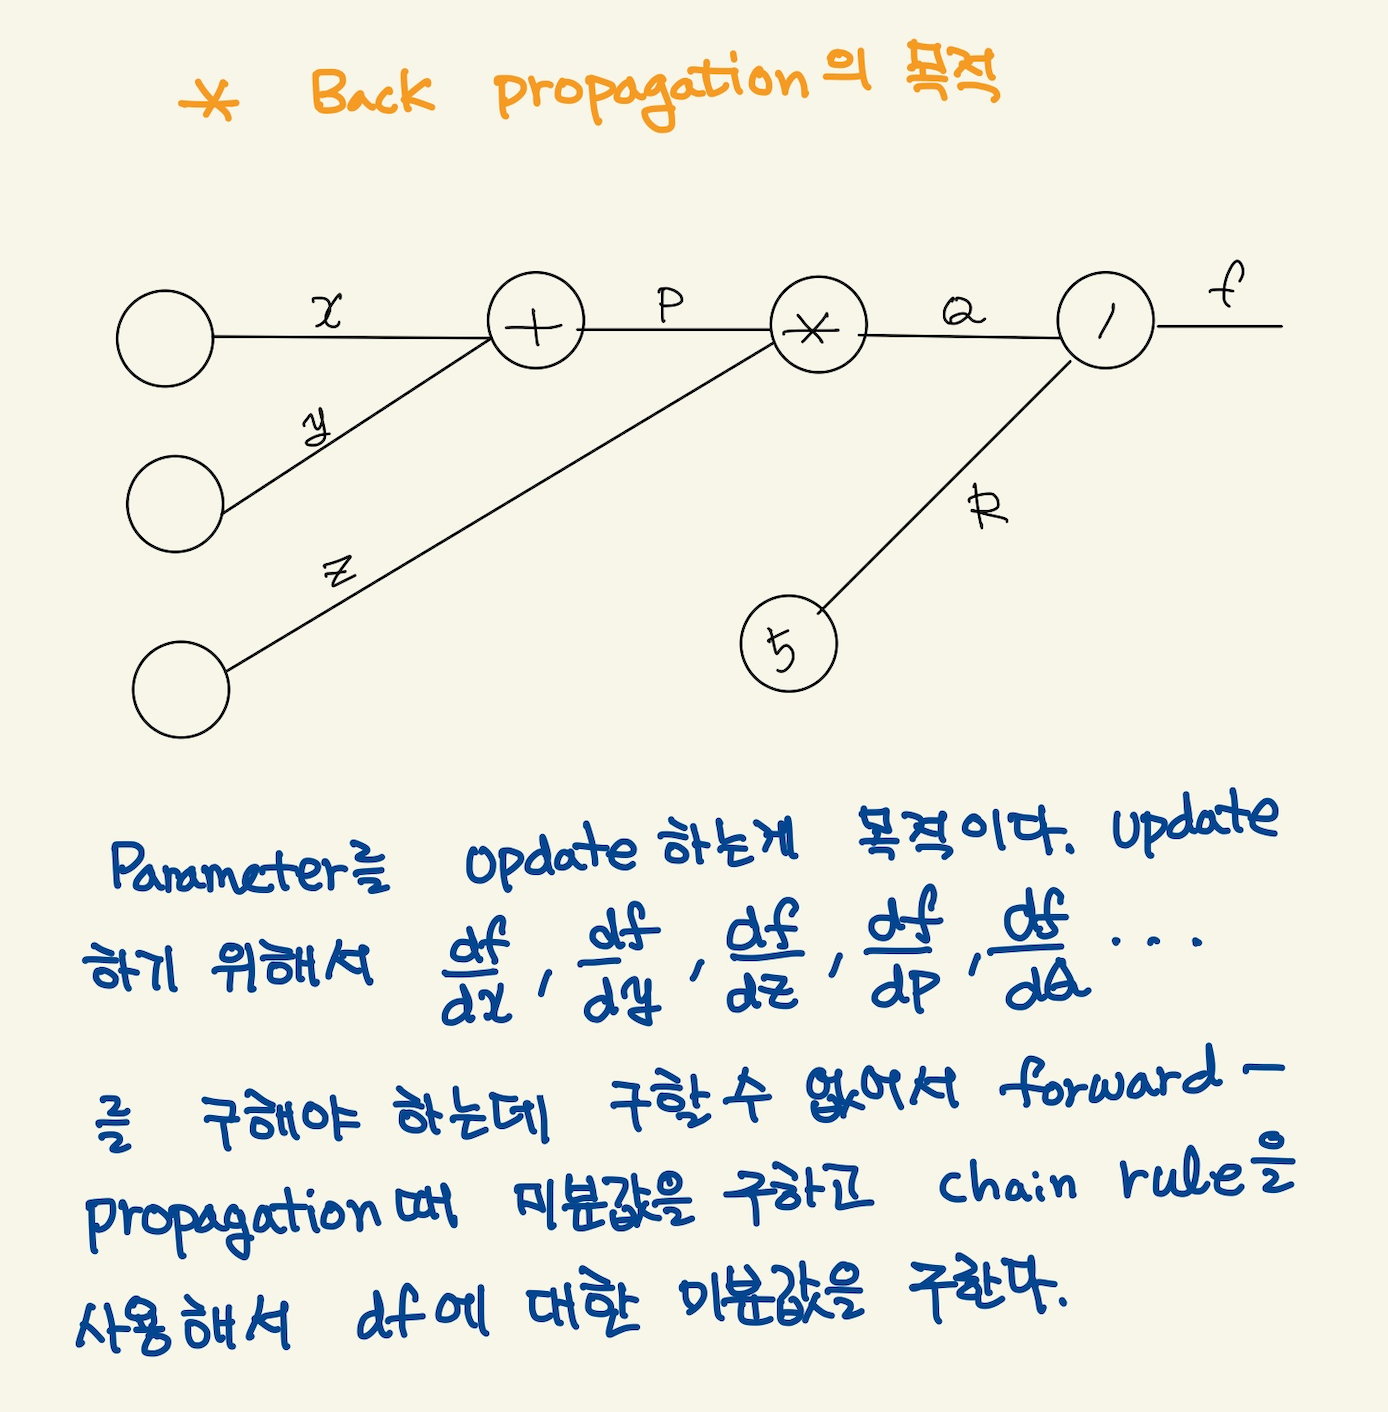 * Back propagation의 목적
x
+
P
*
Q
/
f
y
z
R
5
Parameter를 update 하는게 목적이다. update
하기 위해서 df/dx, df/dy, df/dz, df/dp, df/dQ ...
를 구해야 하는데 구할 수 없어서 forward-
propagation때 미분값을 구하고 chain rule을
사용해서 df에 대한 미분값을 구한다.